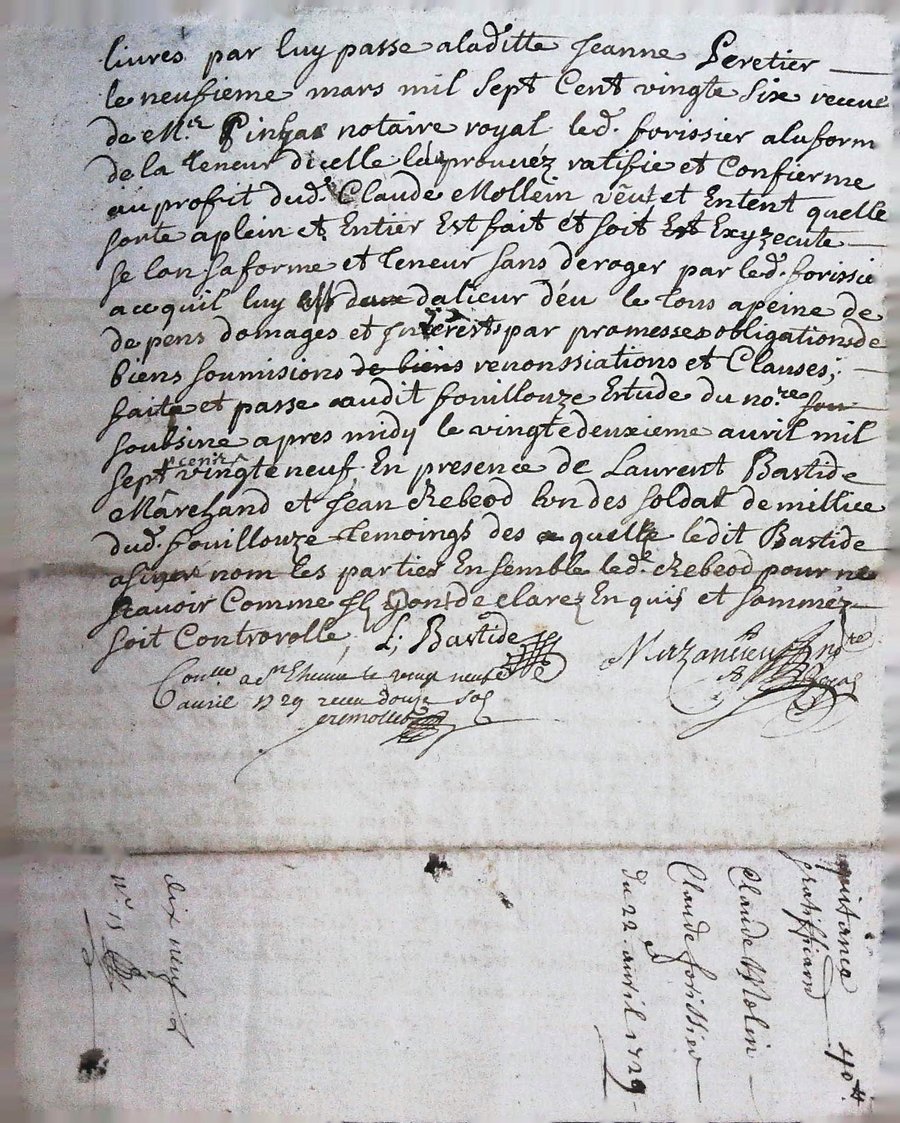 livres par luy passe aladitte Jeanne Peretier
le neufieme mars mil Sept Cent vingte Six receue
de Mre Pinhac notaire royal led. forissier aluform
de la teneur dicelle laprouvéz ratifie et Confierme
au profit dud. Claude Mollein veut et Entent quelle
sorte aplein et Entier Est fait et soit Exyzecute
se lon sa forme et teneur sans deroger par led. forissie
ace quil luy dalieur déu le tous apeine de
de pens domages et Interests par promesses obligations de
biens soumisions de biens renonssiations et Clauses;
faite et passe audit fouillouze Ertude du nore
soubsine apres midy le vingtedeuxieme avril mil
sept cent vingte neuf En presence de Laurent Bastide
Marchand et Jean Rebeod lun des soldat de millice
dud. fouillouze temoings des quelle ledit Bastide
a signe nom les parties Ensemble led. Rebeod pour ne
scavoir Comme Il de clarez Enquis et sommez
soit Controrolle, L; Bastide
a St Etienne le vingt neuf
avril 1729 receu douze sols
quitanca
gratiffiand
40 lt
Claude Molin
Claude forissier
du 22. avril 1729
dix neuf
No 15